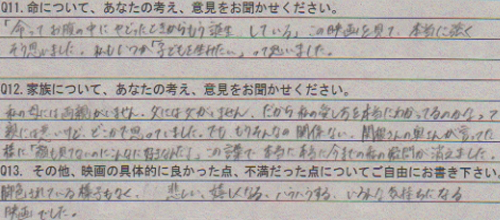 Q11. 命について、あなたの考え、意見をお聞かせください。
「命ってお腹の中にやどったときからもう誕生している」この映画を見て、本当に強く
そう思いました。私もいつか「子どもを生みたい」って思いました。
Q12. 家族について、あなたの考え、意見をお聞かせください。
私の母には両親がいません。父には父がいません。だから私の愛し方を本当にわかってるのかなって
親には悪いけど、どこかで思っていました。でも、もうそんなの関係ない。関根さんの奥さんが言ってた
様に「顔も見てないのにこんなに好きなんだ」この言葉で、本当に本当に今までの私の疑問が消えました。
Q13. その他、映画の具体的に良かった点、不満だった点についてご自由にお書き下さい。
脚色されている様子もなく、悲しい、嬉しくなる、いろいろする、いろんな気持ちになる
映画でした。